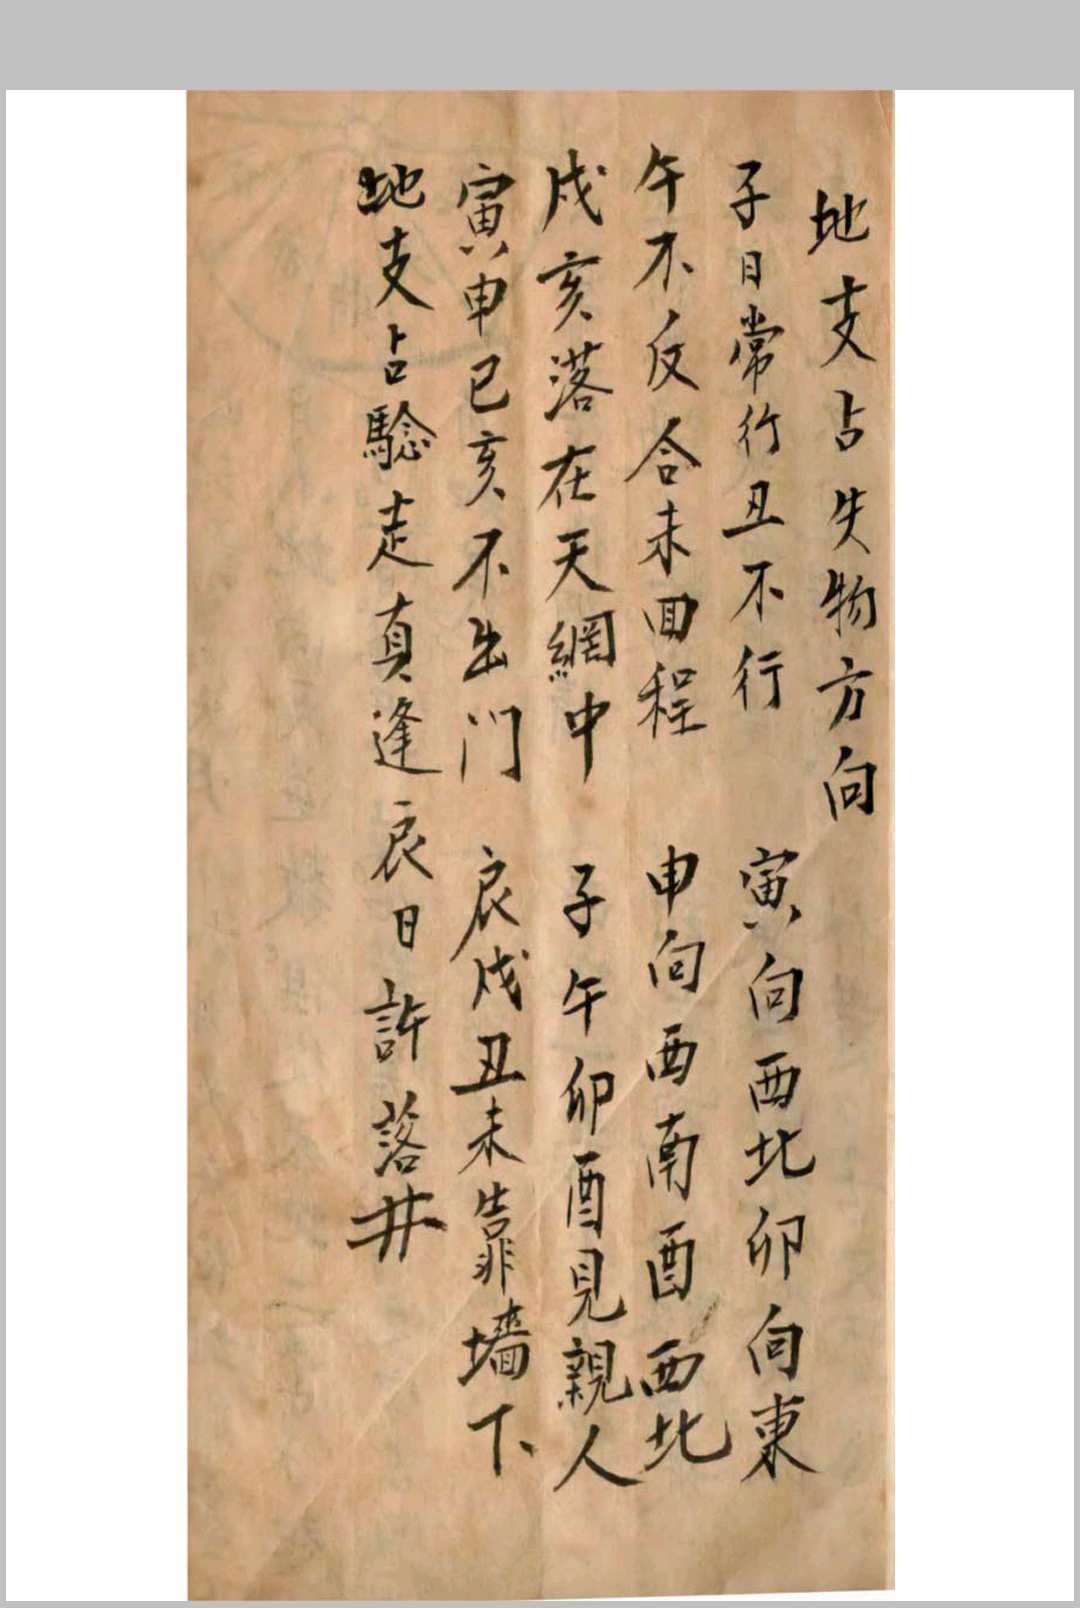 地支占失物方向
子日常行丑不行 寅向西北卯向東
午不反合未回程 申向西南酉西北
戍亥落在天網中 子午卯酉見親人
寅申已亥不出门 辰戍丑未靠墻下
地支占騐走真逢辰日許落井